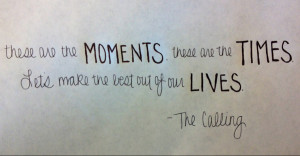 these are the MOMENTS. these are the TIMES.
Lets make the best out of our LIVES.
-The Calling